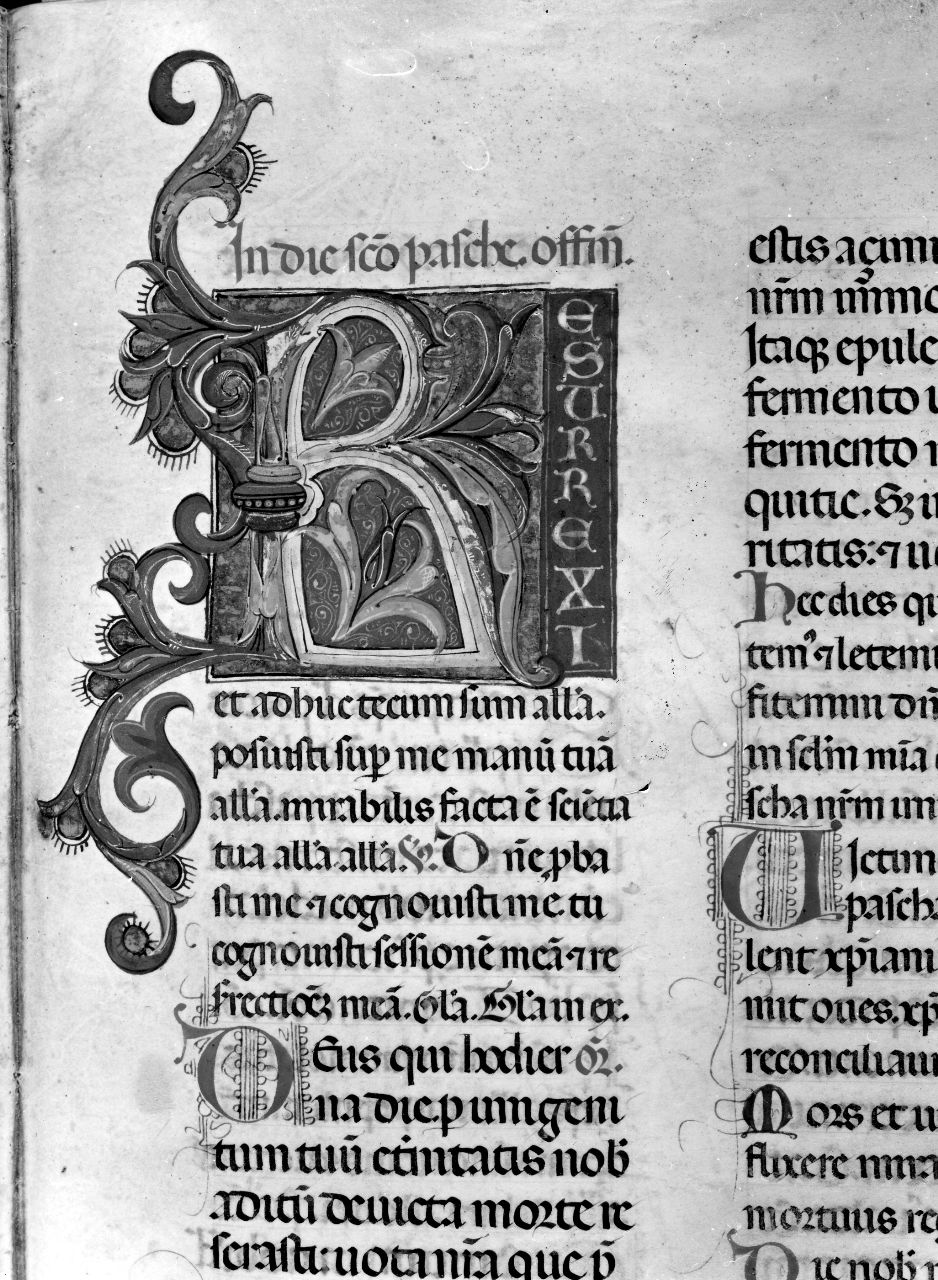 In die scō pasche. offm̄.
RESURREXI
et adhuc tecum sum all'a.
posuisti sup me manū tuā
all'a. mirabilis facta ē sciētia
tua all'a. all'a. Dn̄e p̱ba
sti me ⁊ cognouisti me. tu
cognouisti sessionē meā ⁊ re
meā. Gl'a. Gl'a in ex.
DEus qui hodier or̄.
na die p unigeni
tum tuū et̄nitatis nob̄
aditū deuicta morte re
serasti: uota nr̄a que p̄
estis açimi
nr̄m
Itaq epule
fermento
fermento
quitie. Sꝫ
ritatis: ⁊
hec dies
tem' ⁊ letem
fitemini
in sc̄lm mīa
scha nr̄m im
UIctim
pascha
lent xp̄iani
mit oues. xp̄
reconciliauit
Mors et
fluxere mira
mortuus
Dic nob̄